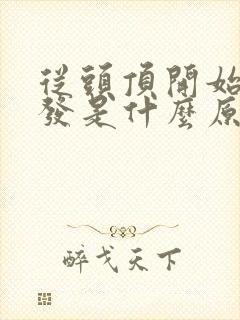 從頭頂開始
發是什麼原
醉戈天下